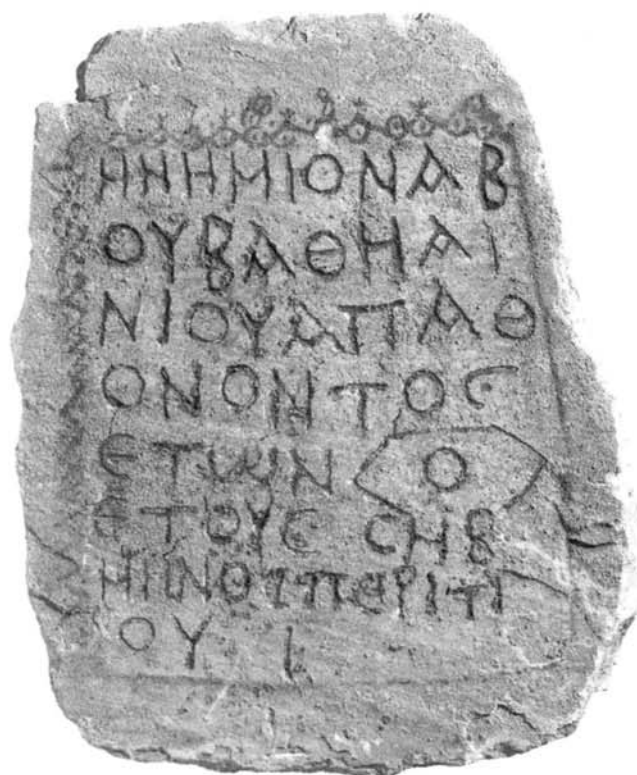 ΜΝΗΜΙΟΝΑΒ
ΟΥΒΑΘΗΑΙ
ΝΙΟΥΑΠΑΘ
ΟΝΟΝΤΟϹ
ΕΤωΝ Ο
ΕΤΟΥϹ ϹΗΒ
ΜΗΝΟϹΠΕΡΙΤΙ
ΟΥ Ι